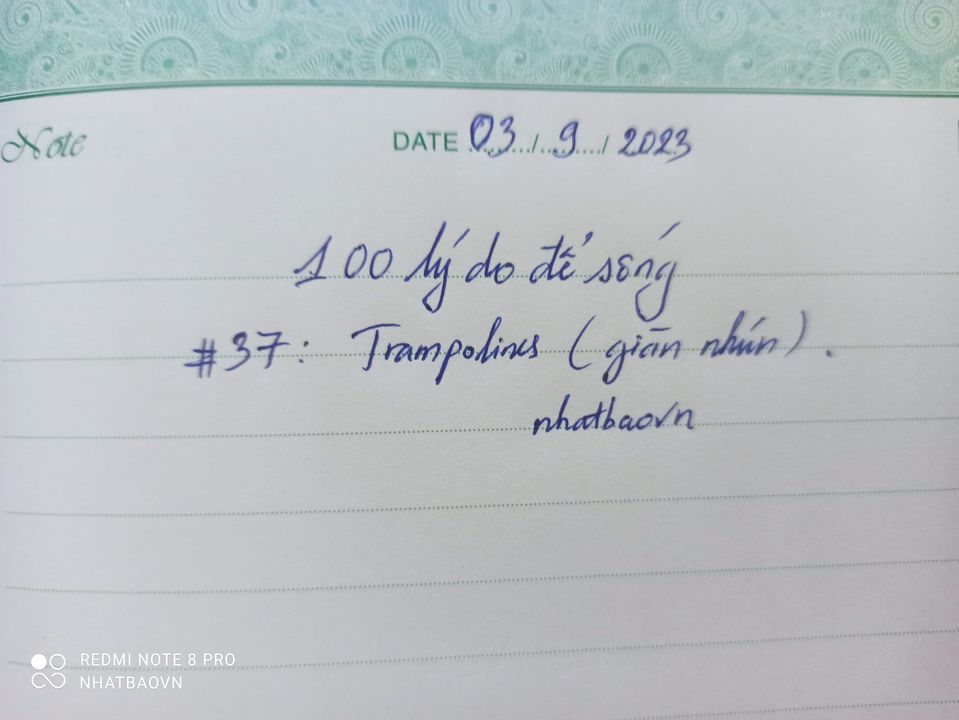 Note
DATE 03/9/2023
100 lý do để sống
#37: Trampolines (giàn nhún).
nhatbaovn
REDMI NOTE 8 PRO
NHATBAOVN